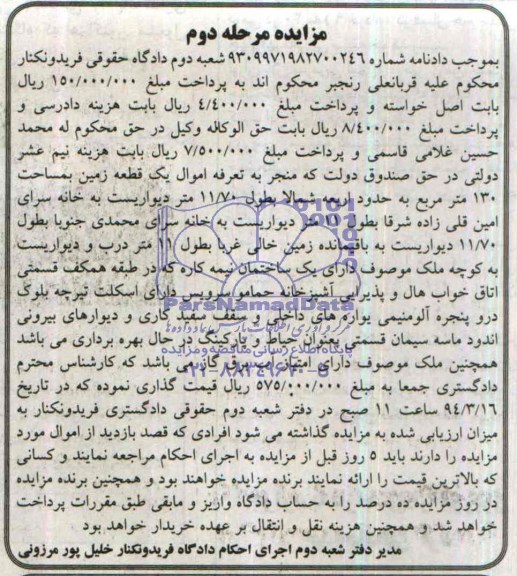 مزایده مرحله دوم
بموجب دادنامه شماره ۹۳۰۹۹۷۱۹۸۲۷۰۰۲۴۶ شعبه دوم دادگاه حقوقی فریدونکنار
محکوم علیه قربانعلی رنجبر محکوم اند به پرداخت مبلغ ۱۵۰/۰۰۰/۰۰۰ ریال
بابت اصل خواسته و پرداخت مبلغ ۴/۴۰۰/۰۰۰ ریال بابت هزینه دادرسی و
پرداخت مبلغ ۸/۴۰۰/۰۰۰ ریال بابت حق الوکاله وکیل در حق محکوم له محمد
حسین غلامی قاسمی و پرداخت مبلغ ۷/۵۰۰/۰۰۰ ریال بابت هزینه نیم عشر
دولتی در حق صندوق دولت که منجر به تعرفه اموال یک قطعه زمین بمساحت
۱۳۰ متر مربع به حدود اربعه شمالا بطول ۱۱/۷۰ متر دیواریست به خانه سرای
امین قلی زاده شرقا بطول ۱۱ متر دیواریست به خانه سرای محمدی جنوبا بطول
۱۱/۷۰ دیواریست به باقیمانده زمین خالی غربا بطول ۱۱ متر درب و دیواریست
به کوچه ملک موصوف دارای یک ساختمان نیمه کاره که در طبقه همکف قسمتی
اتاق خواب هال و پذیرایی آشپزخانه حمامو سرویس دارای اسکلت تیرچه بلوگ
درو پنجره آلومنیمی یواره های داخلی و سقف سفید کاری و دیوارهای بیرونی
اندود ماسه سیمان قسمتی بعنوان حیاط و پارکینگ در حال بهره برداری می باشد
همچنین ملک موصوف دارای امتیاز آب برق گاز می باشد که کارشناس محترم
دادگستری جمعا به مبلغ ۵۷۵/۰۰۰/۰۰۰ ریال قیمت گذاری نموده که در تاریخ
۹۴/۳/۱۶ ساعت ۱۱ صبح در دفتر شعبه دوم حقوقی دادگستری فریدونکنار به
میزان ارزیابی شده به مزایده گذاشته می شود افرادی که قصد بازدید از اموال مورد
مزایده را دارند باید ۵ روز قبل از مزایده به اجرای احکام مراجعه نمایند و کسانی
که بالاترین قیمت را ارائه نمایند برنده مزایده خواهند بود و همچنین برنده مزایده
در روز مزایده ده درصد را به حساب دادگاه واریز و مابقی طبق مقررات پرداخت
خواهد شد و همچنین هزینه نقل و انتقال بر عهده خریدار خواهد بود
مدیر دفتر شعبه دوم اجرای احکام دادگاه فریدونکنار خلیل پور مرزونی
ParsNamadData
پایگاه اطلاع رسانی مناقصه و مزایده